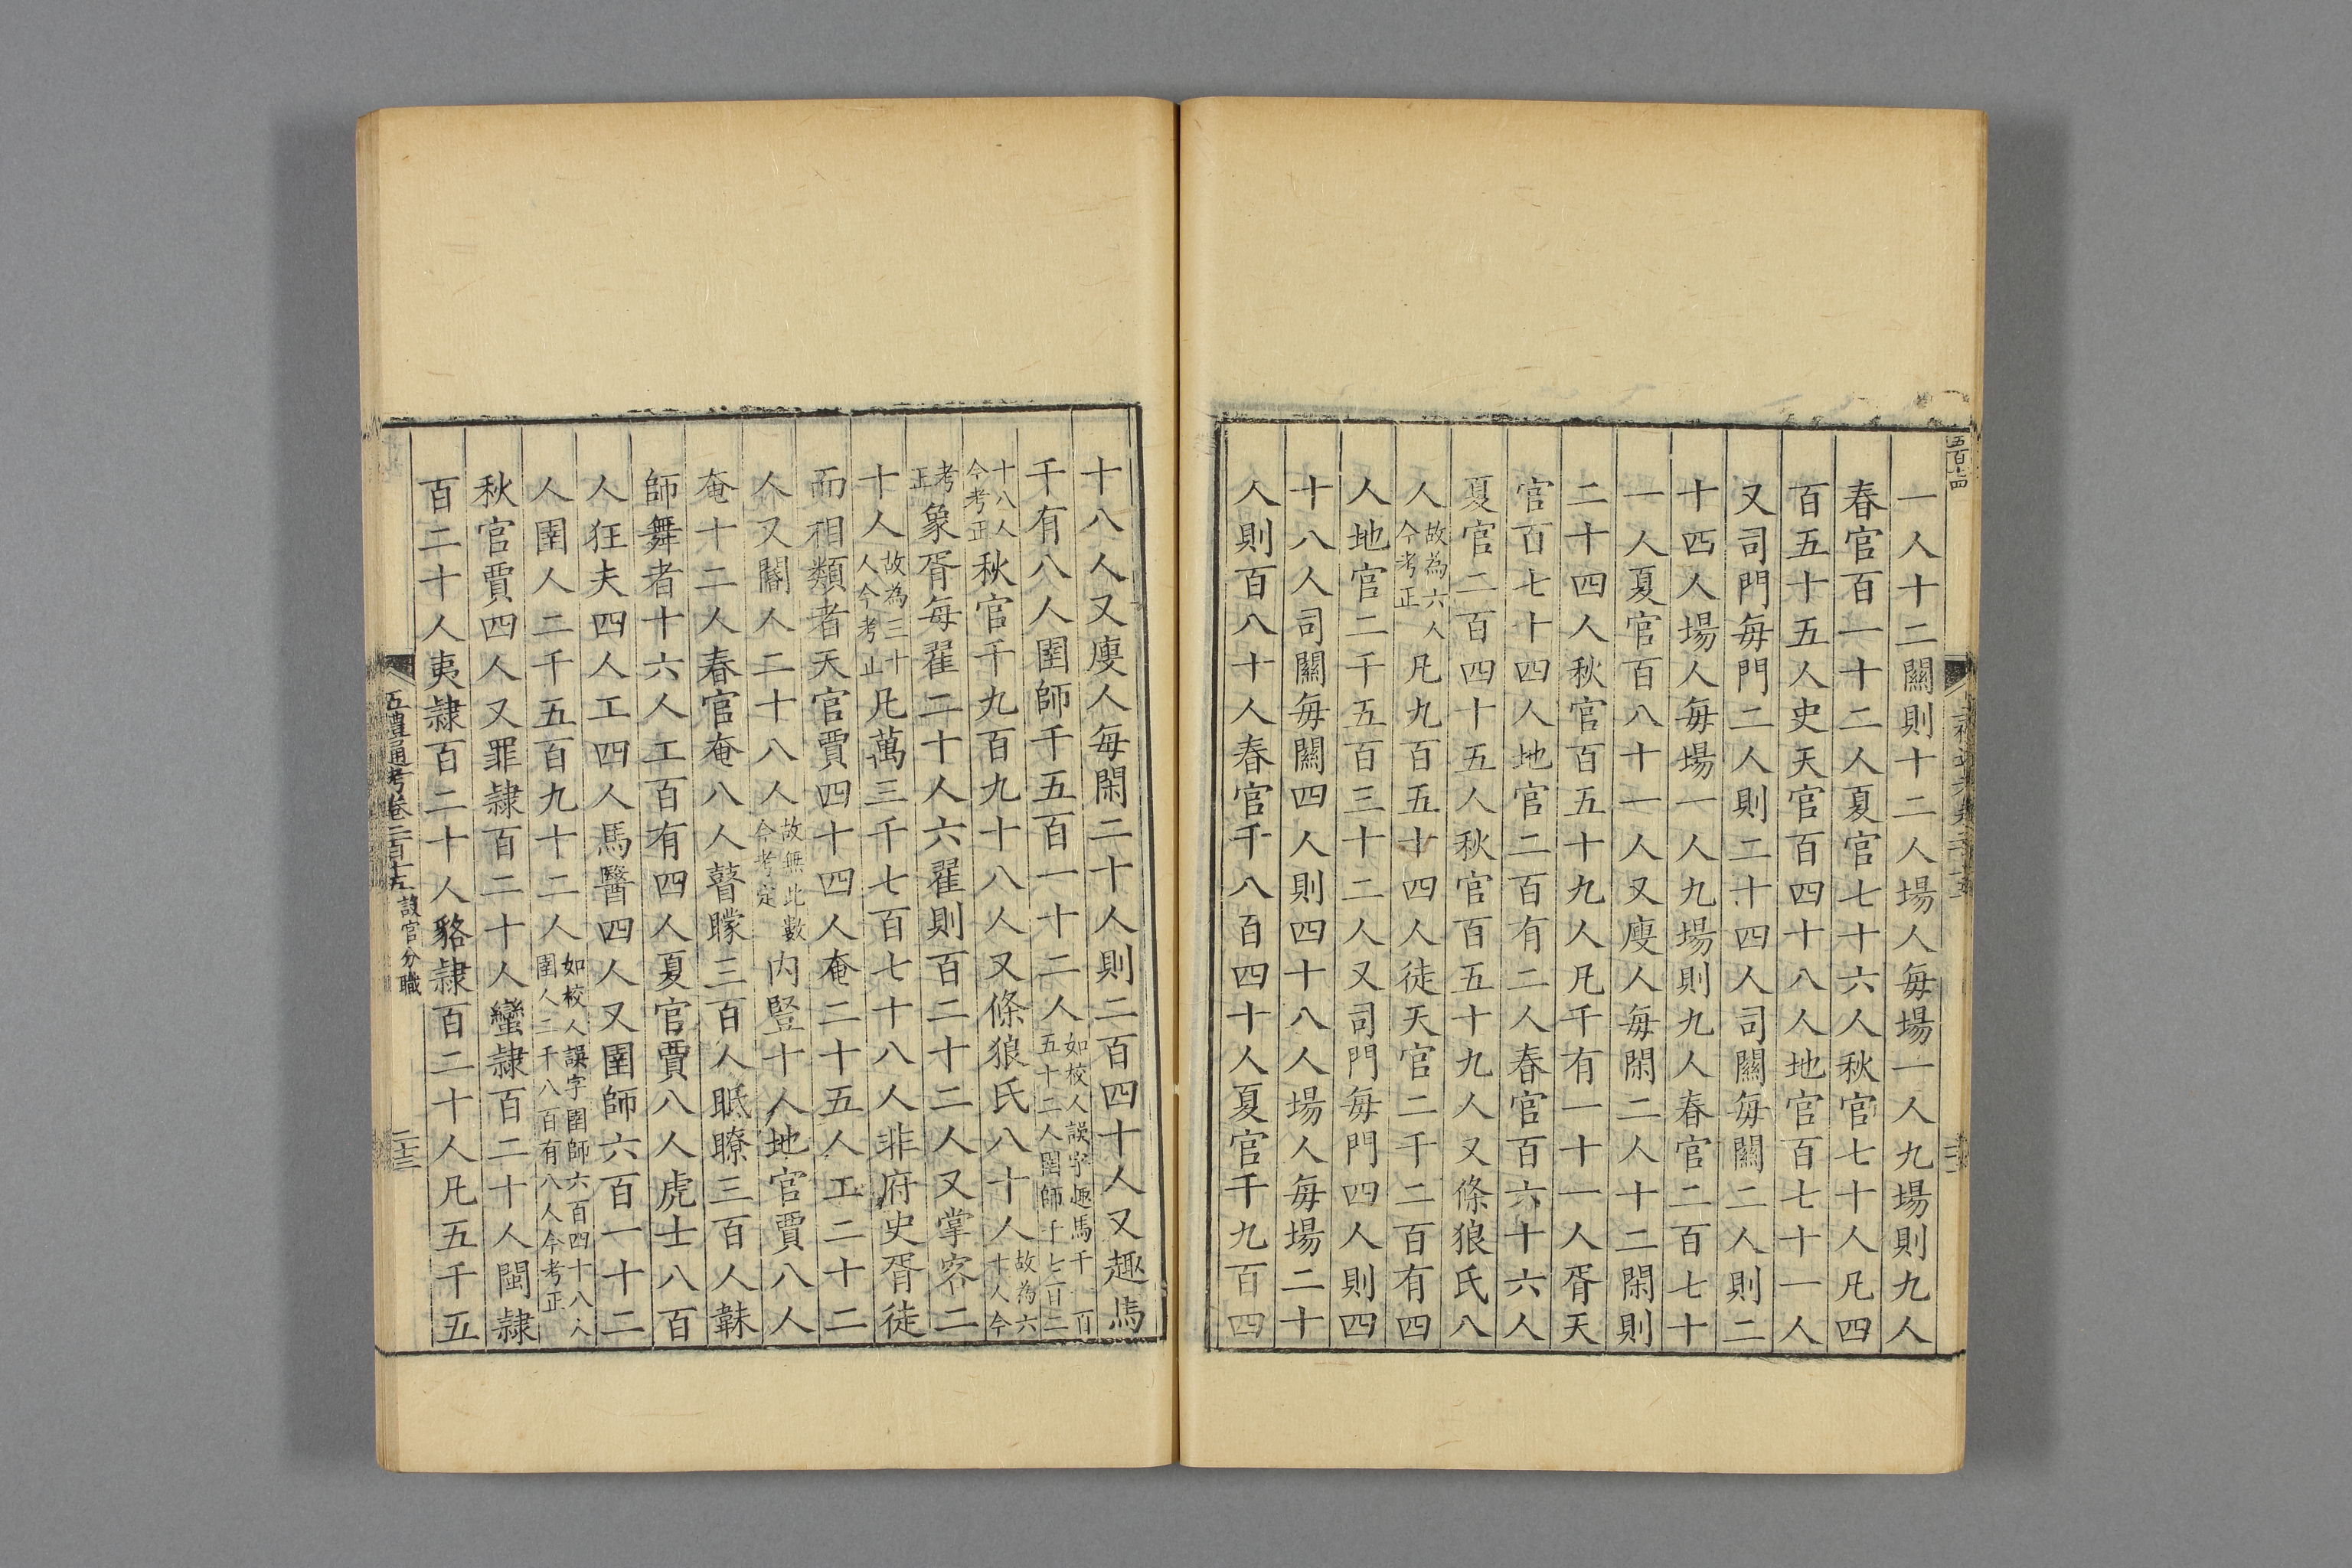 五百十四
一人十二關則十二人場人每場一人九場則九人
春官百一十二人夏官七十六人秋官七十人凡四
百五十五人史天官百四十八人地官百七十一人
又司門每門二人則二十四人司關每關二人則二
十四人場人每場一人九場則九人春官二百七十
一人夏官百八十一人又廋人每閑二人十二閑則
二十四人秋官百五十九人凡千有一十一人胥天
官百七十四人地官二百有二人春官百六十六人
夏官二百四十五人秋官百五十九人又條狼氏八
人故為六人今考正凡九百五十四人徒天官二千二百有四
人地官二千五百三十二人又司門每門四人則四
十八人司關每關四人則四十八人場人每場二十
人則百八十人春官千八百四十人夏官千九百四
十八人又廋人每閑二十人則二百四十人又趣馬
千有八人圉師千五百一十二人如校人誤字趣馬千 百五十二人圉師千七百二
十八人今考正秋官千九百九十八人又條狼氏八十人故為六十人今
考正象胥每翟二十人六翟則百二十二人又掌客二
十人故為三十人今考正凡萬三千七百七十八人非府史胥徒
而相類者天官賈四十四人奄二十五人工二十二
人又閽人二十八人故無此數今考定內豎十人地官賈八人
奄十二人春官奄八人瞽矇三百人眡瞭三百人韎
師舞者十六人工百有四人夏官賈八人虎士八百
人狂夫四人工四人馬醫四人又圉師六百一十二
人圉人二千五百九十二人如校人誤字圉師六百四十八人圉人二千八百有八人今考正
秋官賈四人又罪隸百二十人蠻隸百二十人閩隸
百二十人夷隸百二十人貉隸百二十人凡五千五
五禮通考卷二百十五 設官分職
二十三